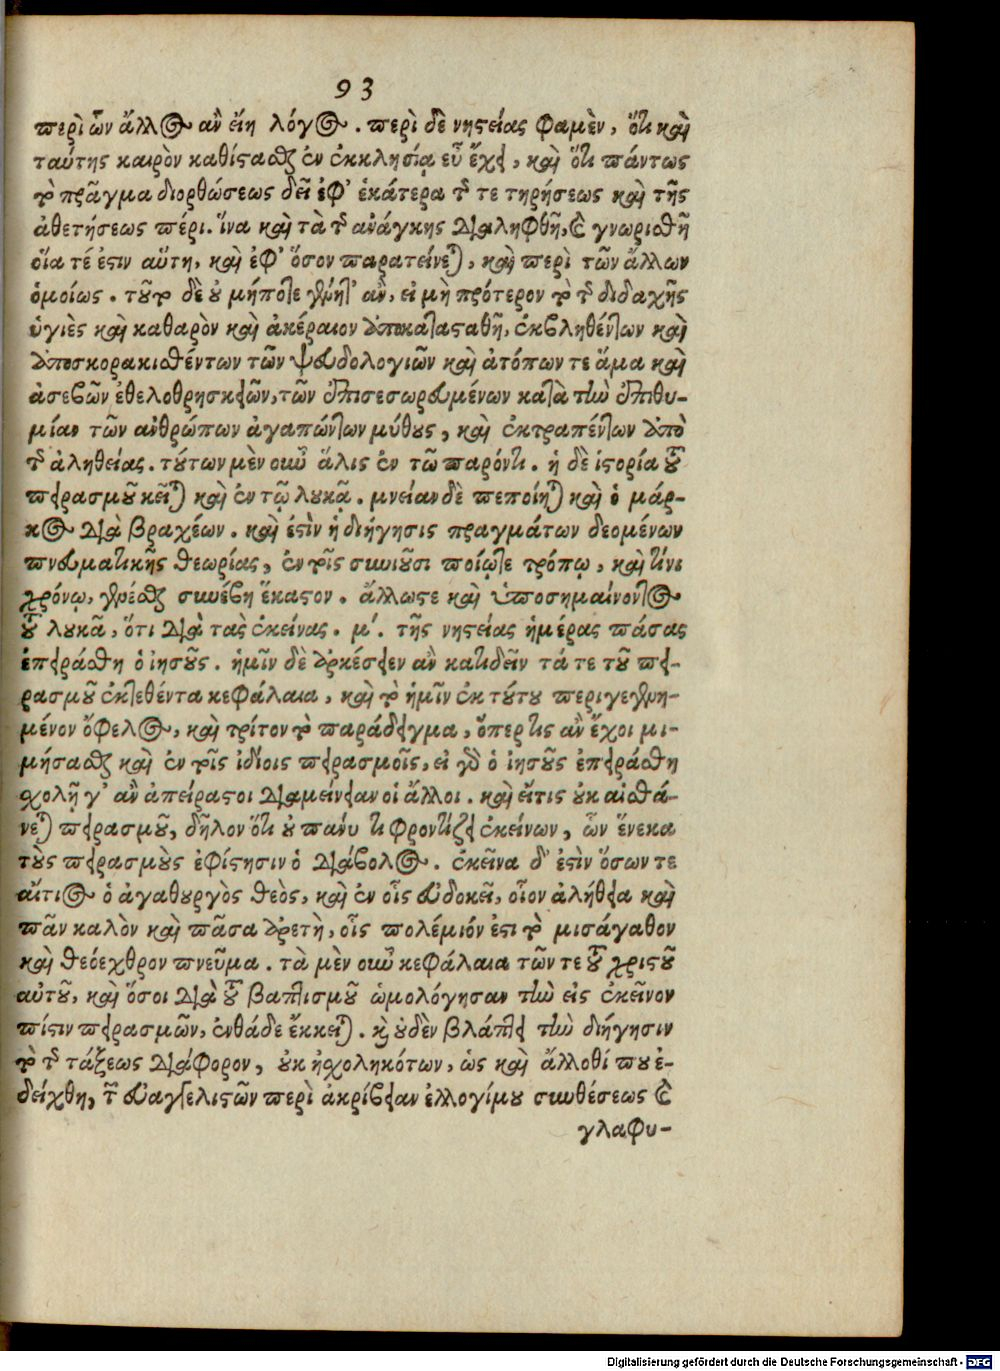 93
περὶ ὧν ἄλλος ἂν εἴη λόγος. περὶ δὲ νηστείας φαμὲν, ὅτι καὶ
ταύτης καιρὸν καθίστασθαι ἐν ἐκκλησίᾳ εὖ ἔχει, καὶ ὅτι πάντως
τὸ πρᾶγμα διορθώσεως δεῖ ἐφ’ ἑκάτερα τῆς τε τηρήσεως καὶ τῆς
ἀθετήσεως πέρι. ἵνα καὶ τὰ τῆς ἀνάγκης διαληφθῇ, καὶ γνωρισθῇ
οἵα τέ ἐστιν αὕτη, καὶ ἐφ’ ὅσον παρατείνεται, καὶ περὶ τῶν ἄλλων
ὁμοίως. τοῦτο δὲ οὐ μήποτε γένητ’ ἂν, εἰ μὴ πρότερον τὸ τῆς διδαχῆς
ὑγιὲς καὶ καθαρὸν καὶ ἀκέραιον ἀποκατασταθῇ, ἐκβληθέντων καὶ
ἀποσκορακισθέντων τῶν ψευδολογιῶν καὶ ἀτόπων τε ἅμα καὶ
ἀσεβῶν ἐθελοθρησκειῶν, τῶν ἐπισεσωρευμένων κατὰ τὴν ἐπιθυ-
μίαν τῶν ἀνθρώπων ἀγαπώντων μύθους, καὶ ἐκτραπέντων ἀπὸ
τῆς ἀληθείας. τούτων μὲν οὖν ἅλις ἐν τῷ παρόντι. ἡ δὲ ἱστορία τοῦ
πειρασμοῦ κεῖται καὶ ἐν τῷ λουκᾷ. μνείαν δὲ πεποίηται καὶ ὁ μάρ-
κος διὰ βραχέων. καὶ ἐστὶν ἡ διήγησις πραγμάτων δεομένων
πνευματικῆς θεωρίας, ἐν τοῖς συνιοῦσι ποίῳτε τρόπῳ, καὶ τίνι
χρόνῳ, γενέσθαι συνέβη ἕκαστον. ἄλλωστε καὶ ὑποσημαίνοντος
τοῦ λουκᾶ, ὅτι διὰ τὰς ἐκείνας. μ΄. τῆς νηστείας ἡμέρας πάσας
ἐπειράσθη ὁ ἰησοῦς. ἡμῖν δὲ ἀρκέσειεν ἂν κατιδεῖν τά τε τοῦ πει-
ρασμοῦ ἐκτεθέντα κεφάλαια, καὶ τὸ ἡμῖν ἐκ τούτου περιγεγενη-
μένον ὄφελος, καὶ τρίτον τὸ παράδειγμα, ὅπερ τις ἂν ἔχοι μι-
μήσασθαι καὶ ἐν τοῖς ἰδίοις πειρασμοῖς, εἰ γὰρ ὁ ἰησοῦς ἐπειράσθη
σχολῇ γ’ ἂν ἀπείρατοι διαμείνειαν οἱ ἄλλοι. καὶ εἴτις οὐκ αἰσθά-
νεται πειρασμοῦ, δῆλον ὅτι οὐ πάνυ τι φροντίζει ἐκείνων, ὧν ἕνεκα
τοὺς πειρασμοὺς ἐφίστησιν ὁ διάβολος. ἐκεῖνα δ’ ἐστὶν ὅσων τε
αἴτιος ὁ ἀγαθουργὸς θεὸς, καὶ ἐν οἷς εὐδοκεῖ, οἷον ἀλήθεια καὶ
πᾶν καλὸν καὶ πᾶσα ἀρετὴ, οἷς πολέμιόν ἐστι τὸ μισάγαθον
καὶ θεόεχθρον πνεῦμα. τὰ μὲν οὖν κεφάλαια τῶν τε τοῦ χριστοῦ
αὐτοῦ, καὶ ὅσοι διὰ τοῦ βαπτισμοῦ ὡμολόγησαν τὴν εἰς ἐκεῖνον
πίστιν πειρασμῶν, ἐνθάδε ἔκκειται. καὶ οὐδὲν βλάπτει τὴν διήγησιν
τὸ τῆς τάξεως διάφορον, οὐκ ἠσχοληκότων, ὡς καὶ ἄλλοθί που ἐ-
δείχθη, τῶν εὐαγγελιστῶν περὶ ἀκρίβειαν ἐλλογίμου συνθέσεως καὶ
γλαφυ-
Digitalisierung gefördert durch die Deutsche Forschungsgemeinschaft - DFG